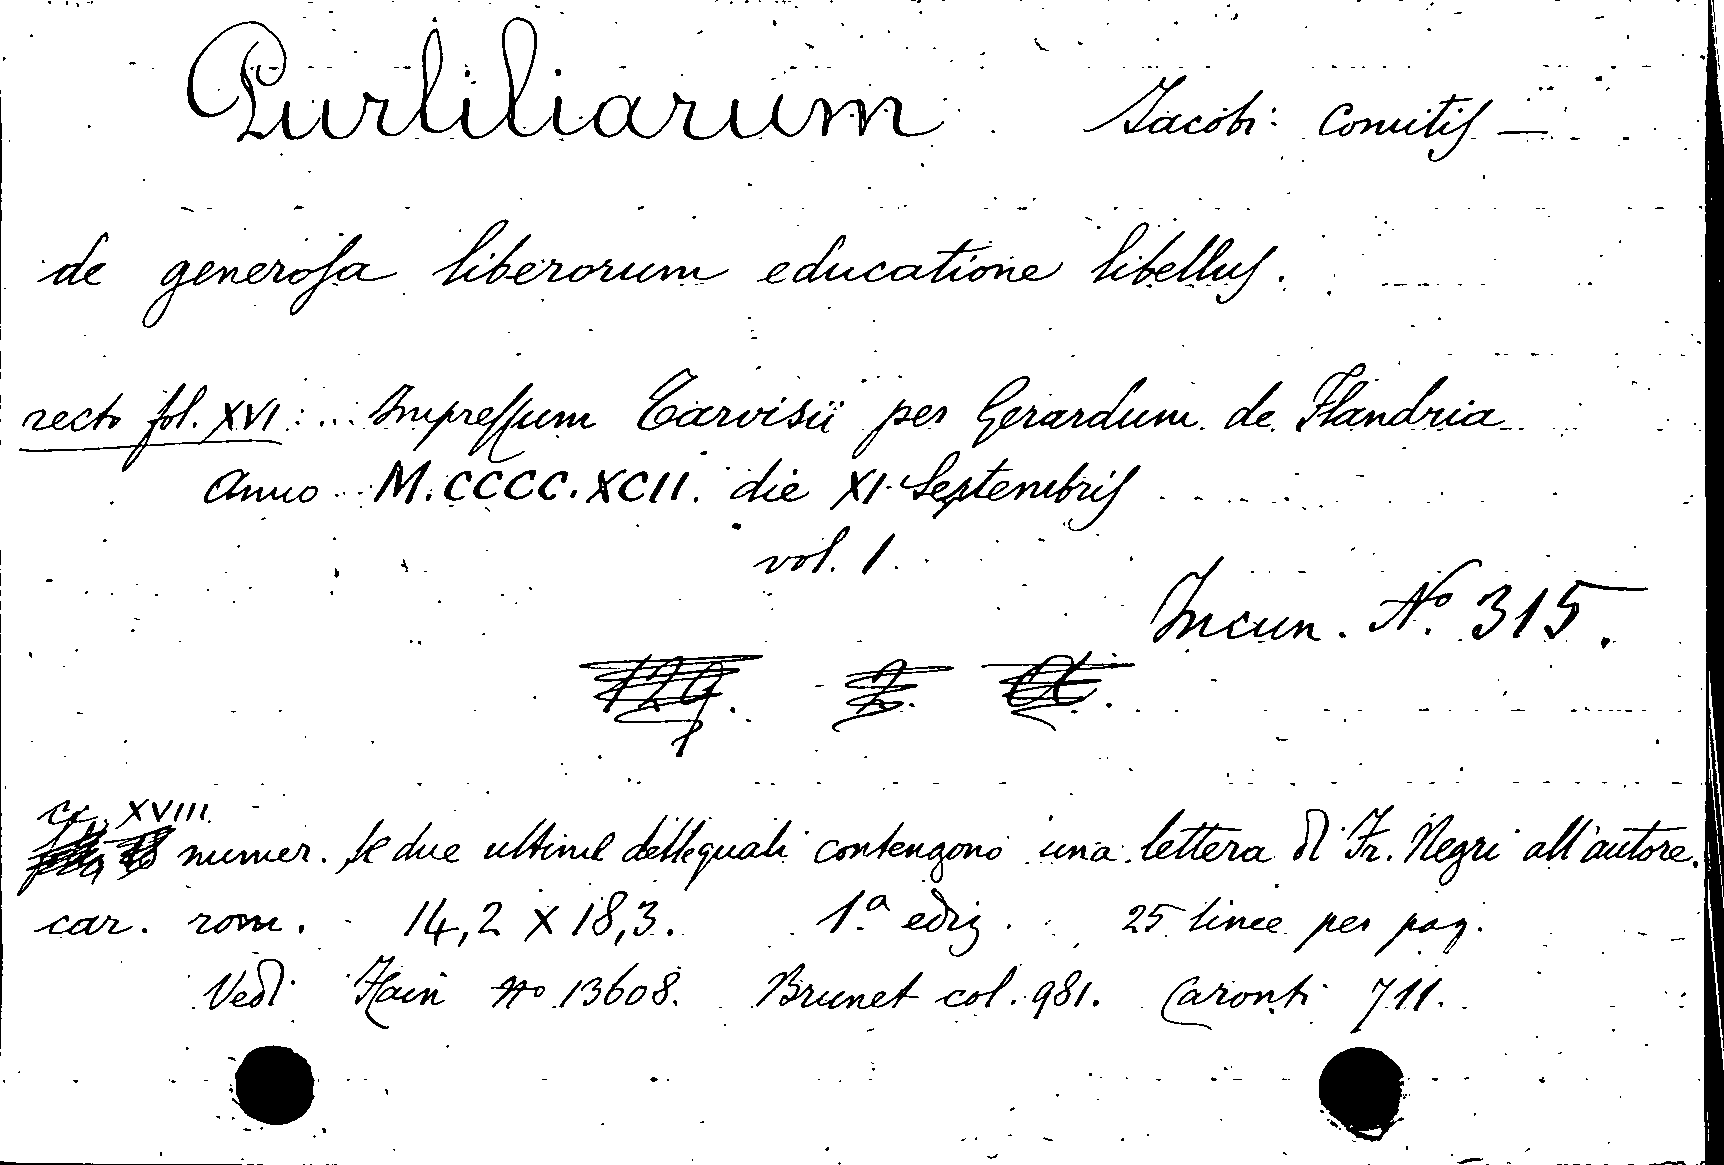 Purliliarum Jacobi Comitis —
de generosa liberorum educatione libellus.
recto fol. XVI: ... Impressum Tarvisii per Gerardum de Flandria
Anno M.CCCC.XCII. die XI Septembris
vol. 1.
Incun. N.º 315.
cc. XVIII
numer. le due ultime delle quali contengono una lettera di Fr. Negri all'autore.
car. rom. 14,2 X 18,3. 1.ª ediz. 25 linee per pag.
Vedi Hain Nº 13608. Brunet col. 981. Caronti 711.